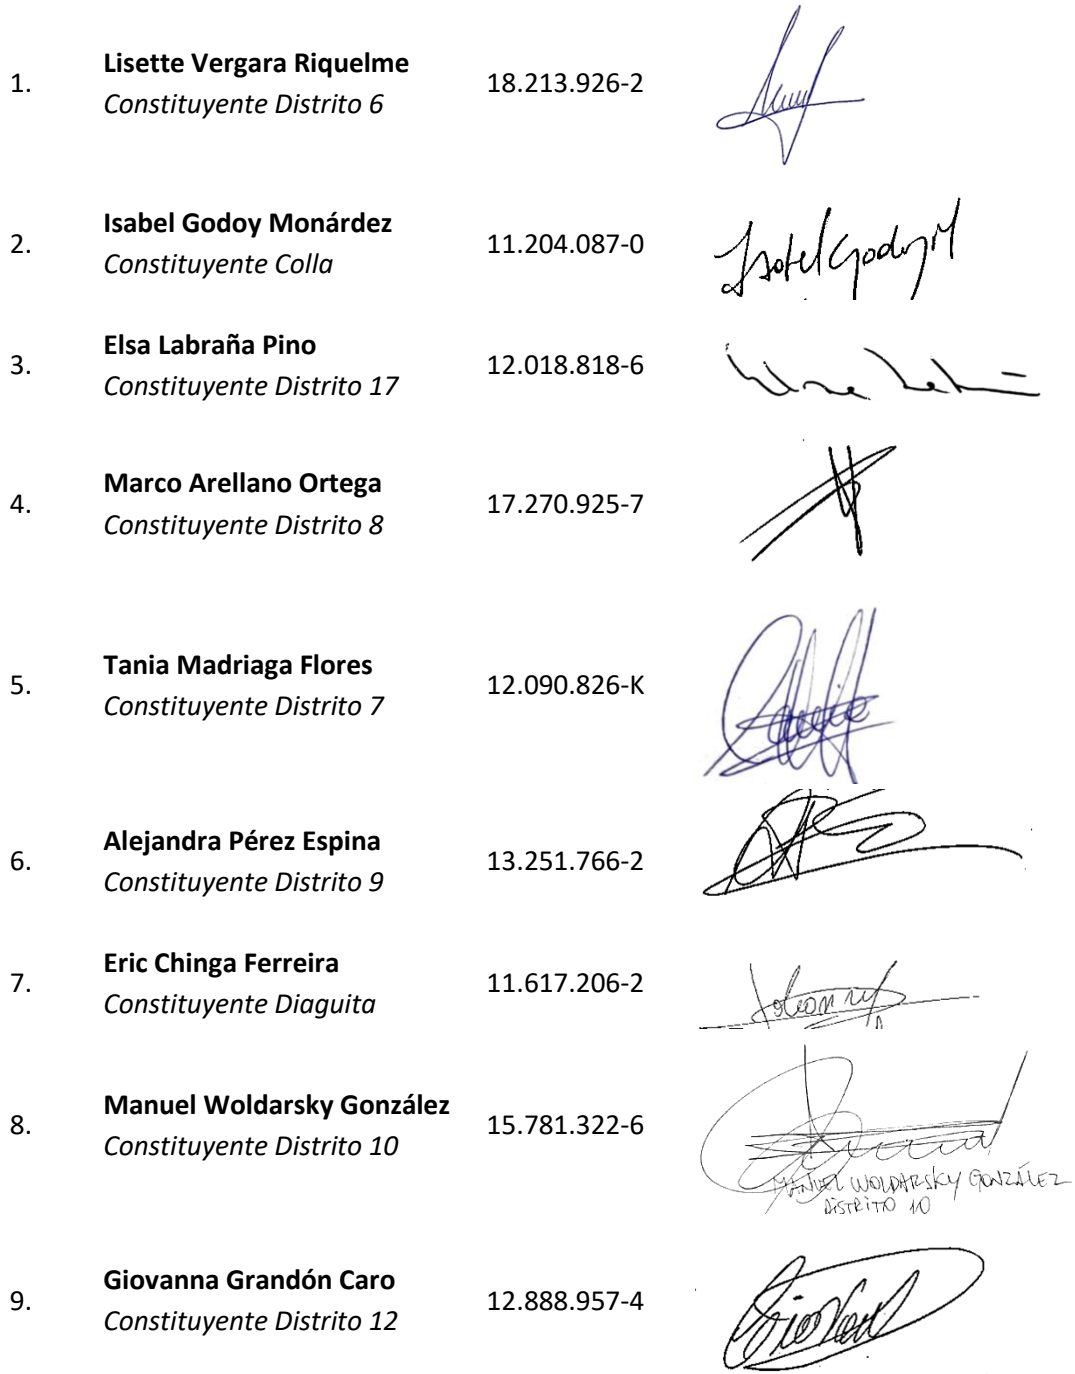 1.
Lisette Vergara Riquelme
Constituyente Distrito 6
18.213.926-2
2.
Isabel Godoy Monárdez
Constituyente Colla
11.204.087-0
Isabel Godoy M
3.
Elsa Labraña Pino
Constituyente Distrito 17
12.018.818-6
4.
Marco Arellano Ortega
Constituyente Distrito 8
17.270.925-7
5.
Tania Madriaga Flores
Constituyente Distrito 7
12.090.826-K
6.
Alejandra Pérez Espina
Constituyente Distrito 9
13.251.766-2
7.
Eric Chinga Ferreira
Constituyente Diaguita
11.617.206-2
8.
Manuel Woldarsky González
Constituyente Distrito 10
15.781.322-6
MANUEL WOLDARSKY GONZÁLEZ
DISTRITO 10
9.
Giovanna Grandón Caro
Constituyente Distrito 12
12.888.957-4